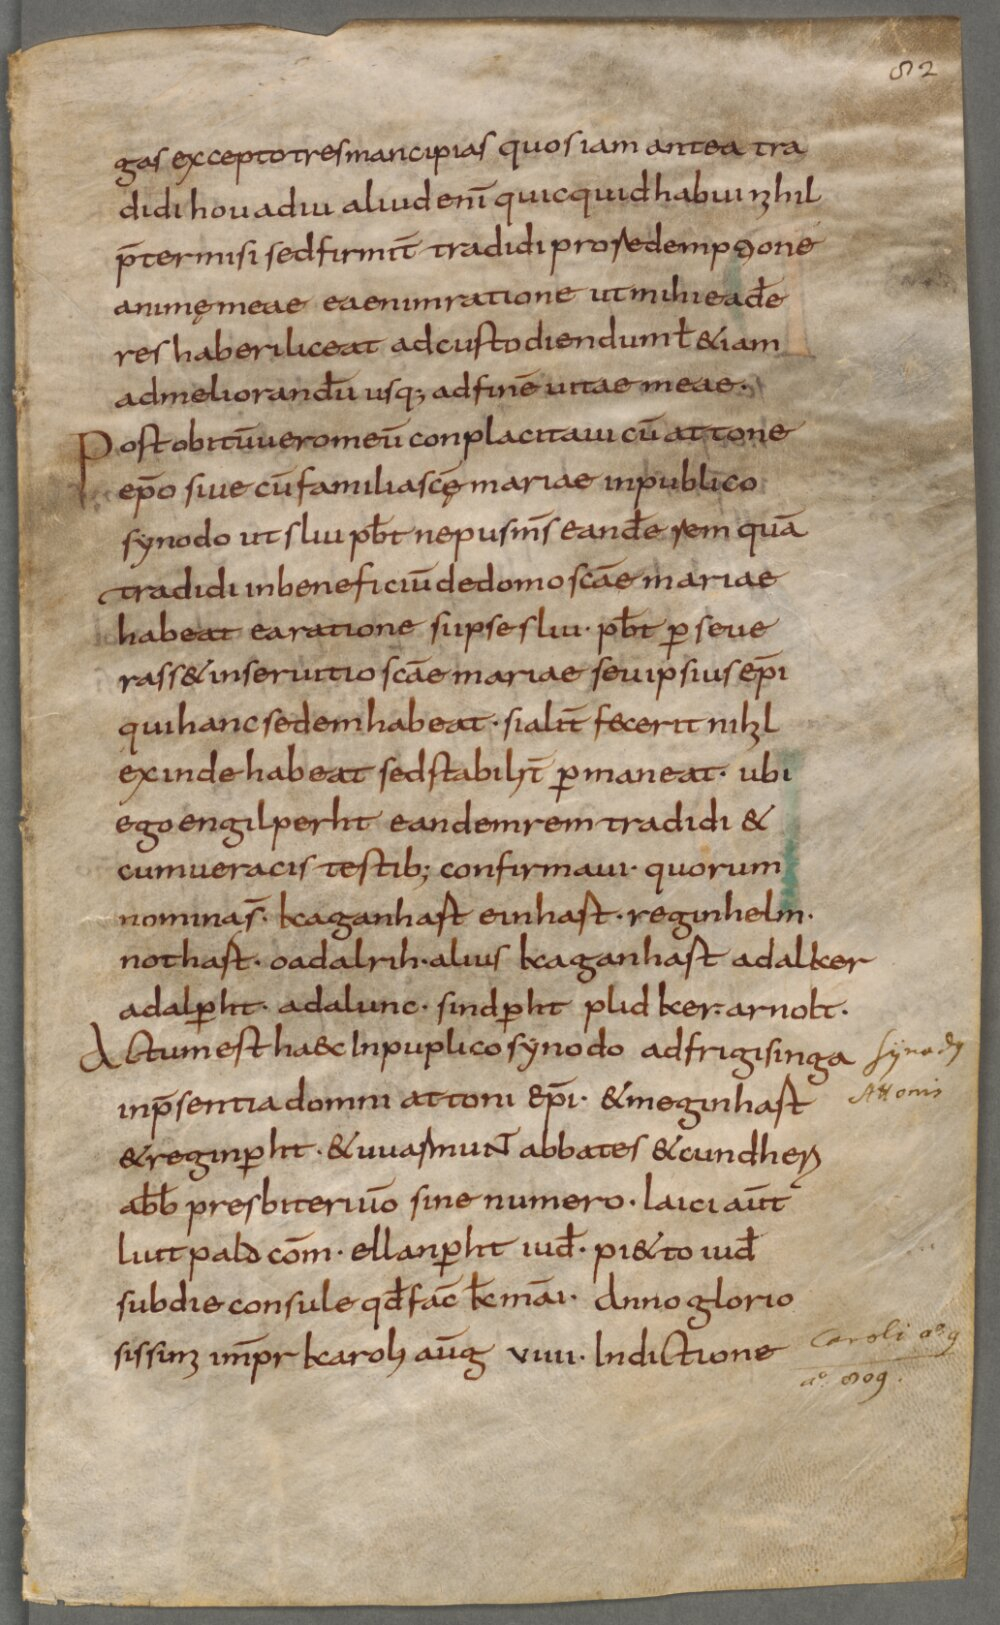 82
gas excepto tres mancipias quos iam antea tra
didi hou adiu aliud enī quicquid habui nihil
p̄termisi sed firmit̄ tradidi pro redempcione
animę meae ea enim ratione ut mihi ead̄e
res haberi liceat ad custodiendum ł &iam
ad meliorand̄u usq; ad finē uitae meae.
Post obitū uero meū conplacitaui cū attone
ep̄o siue cū familia sc̄ę mariae in publico
synodo ut sliu pb̄t nepus m̄s eand̄e rem quā
tradidi in beneficiū de domo sc̄ae mariae
habeat ea ratione si ipse sliu. pb̄t p̄ seue
rass& in seruitio sc̄ae mariae seu ipsius ep̄i
qui hanc sedem habeat. si alit̄ fecerit nihil
exinde habeat sed stabilit̄ p̄maneat. ubi
ego engilperht eandem rem tradidi &
cum ueracis testib; confirmaui. quorum
nomina s̄. kaganhast einhast. reginhelm.
nothast. oadalrih. alius kaganhast adalker
adalp̄ht. adalunc. sindp̄ht plidker. arnolt.
Actum est haec In puplico synodo ad frigisinga
Synodus
in p̄sentia domni attoni ep̄i. & meginhast
Attonis
& reginp̄ht. & uuasmunt abbates & cundheri
abb̄ presbiteriūo sine numero. laici aūt
liutpald cōm. ellanp̄ht iud̄. pi&to iud̄
sub die consule qd̄ fac̄ k̄ māi. Anno glorio
sissimi im̄pr karoli aūg VIIII. Indictione
Caroli aº. 9
aº. 809.